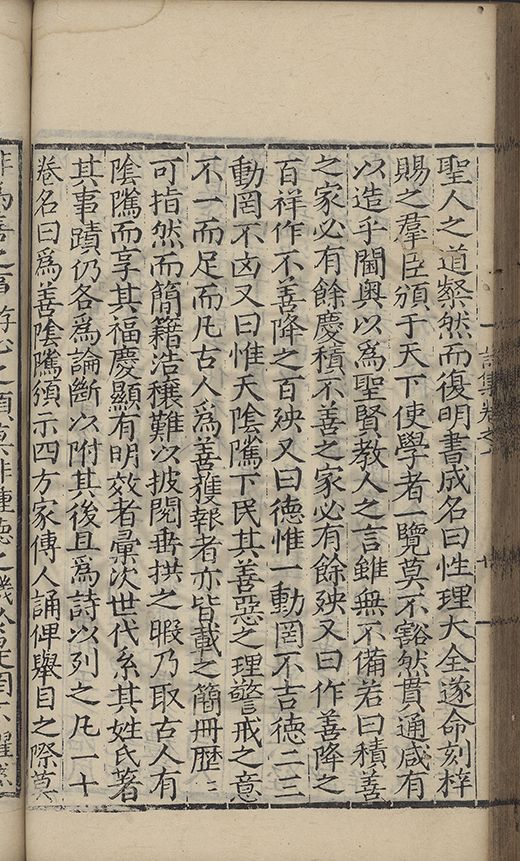 聖人之道粲然而復明書成名曰性理大全遂命刻梓
賜之羣臣頒于天下使學者一覽莫不豁然貫通咸有
以造乎閫奥以爲聖賢教人之言雖無不備若曰積善
之家必有餘慶積不善之家必有餘殃又曰作善降之
百祥作不善降之百殃又曰德惟一動罔不吉德二三
動罔不凶又曰惟天陰隲下民其善惡之理警戒之意
不一而足而凡古人爲善獲報者亦皆載之簡冊歴歴
可指然而簡籍浩穰難以披閲垂拱之暇乃取古人有
陰隲而享其福慶顯有明效者彙次世代系其姓氏著
其事蹟仍各爲論斷以附其後且爲詩以列之凡一十
卷名曰爲善陰隲頒示四方家傳人誦俾舉目之際莫